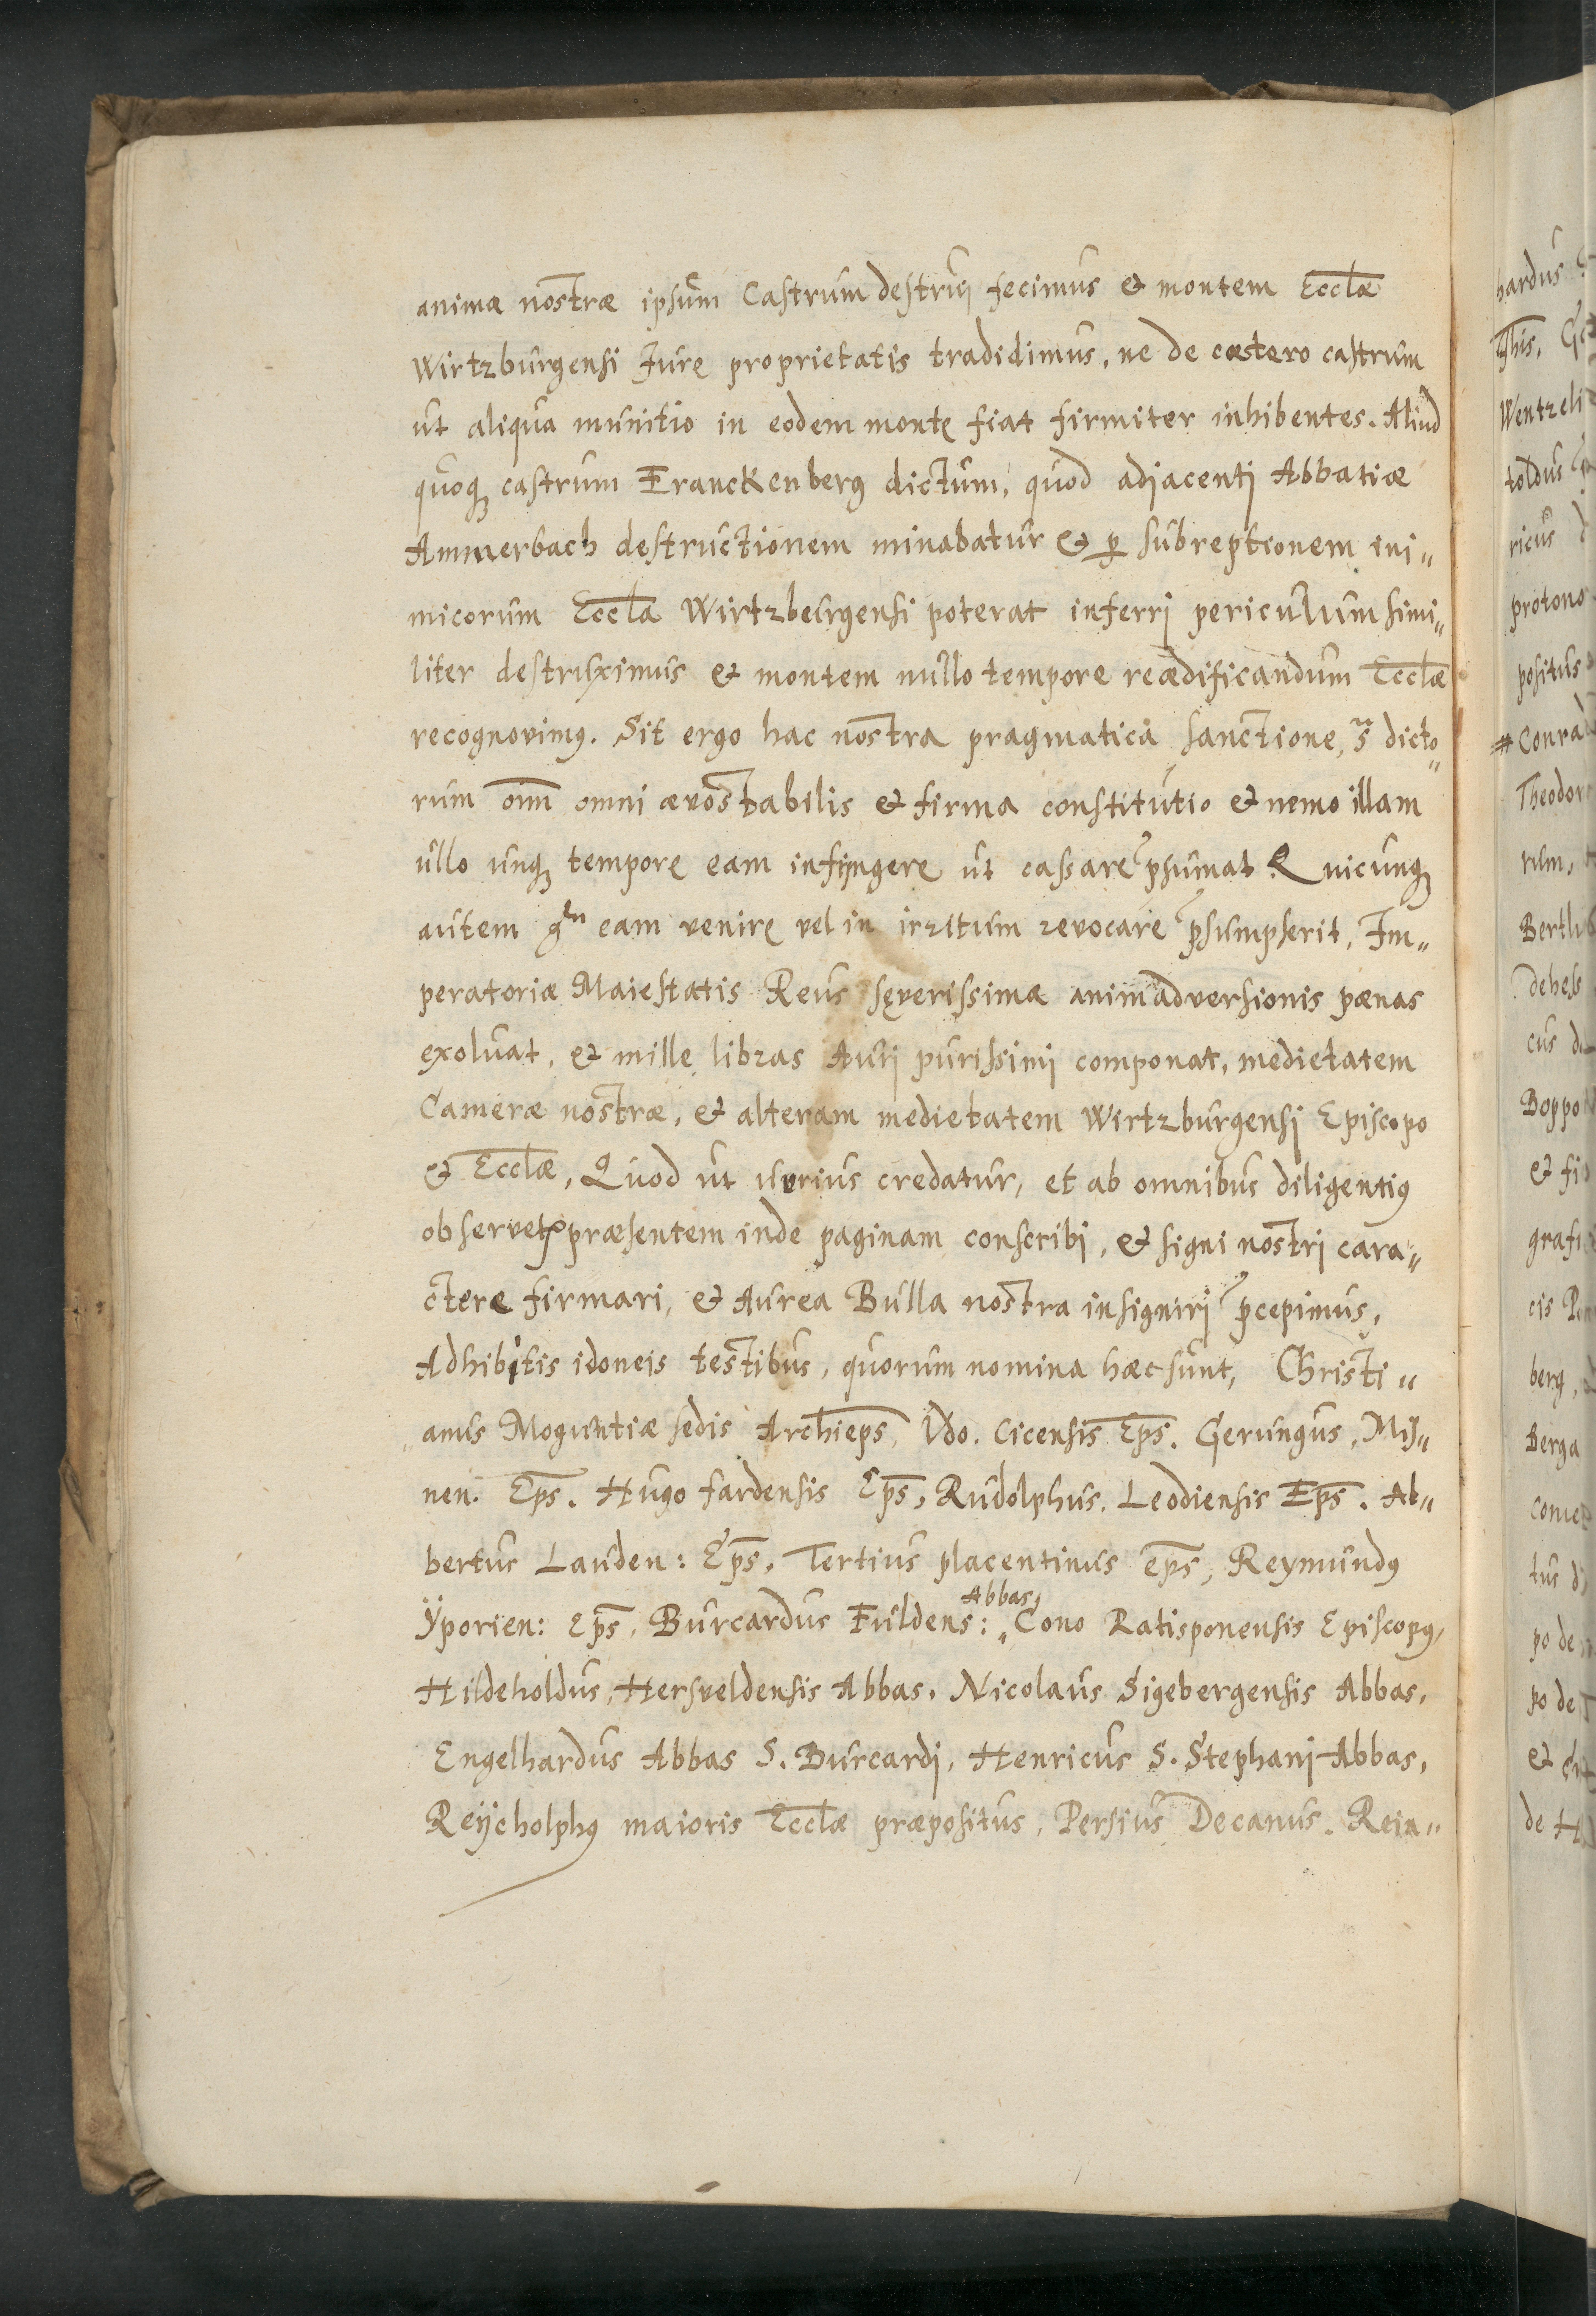 animæ nostræ ipsum Castrum destrui fecimus & montem Eccłæ
Wirtzburgensi Jure proprietatis tradidimus, ne de cætero castrum
ut aliqua munitio in eodem monte fiat firmiter inhibentes. Aliud
quoq; castrum Franckenberg dictum, quod adjacenti Abbatiæ
Ammerbach destructionem minabatur & ꝑ subreptionem ini„
micorum Eccła Wirtzburgensi poterat inferri periculum simi„
liter destruximus & montem nullo tempore reædificandum Eccłæ
recognovimꝰ. Sit ergo hac nostra pragmatica sanctione, s̃ dicto„
rum om̃ omni ævo stabilis & firma constitutio & nemo illam
ullo unq; tempore eam infringere ut cassare p̃sumat Quicunq;
autem eam venire vel in irritum revocare p̃sumpserit, Im„
peratoriæ Maiestatis Reus severissimæ animadversionis pænas
exoluat, & mille libras Auri purissimi componat, medietatem
Cameræ nostræ, & alteram medietatem Wirtzburgensi Episcopo
& Eccłæ, Quod ut verius credatur, et ab omnibus diligentiꝰ
observetꝰ præsentem inde paginam conscribi, & signi nostri cara„
ctere firmari, & Aurea Bulla nostra insigniri p̃cepimus,
Adhibitis idoneis testibus, quorum nomina hæc sunt, Christi„
„anus Moguntiæ sedis Archiep̄s, Vdo. Cicensis Ep̄s. Gerungus, Mis„
nen. Ep̄s. Hugo fardensis Ep̄s, Rudolphus, Leodiensis Ep̄s. Al„
bertus Lauden: Ep̄s, Tertius placentinus ep̄s, Reymundꝰ
Ÿporien: Ep̄s, Burcardus Fuldens: Abbas, Cono Ratisponensis Episcopꝰ,
Hildeholdus, Hersveldensis Abbas, Nicolaus Sigebergensis Abbas,
Engelhardus Abbas S. Burcardi, Henricus S. Stephani Abbas,
Reÿcholphꝰ maioris Eccłæ præpositus, Persius Decanus. Rein„
hardus
Wentzeli
toldus
ricus
protono
positus
# Conrad
Theodor
rum,
Bertl
de hess
cus d
Boppo
& fi
grafi
cis
berg,
Berga
come
tus d
po de
po de
&
de H